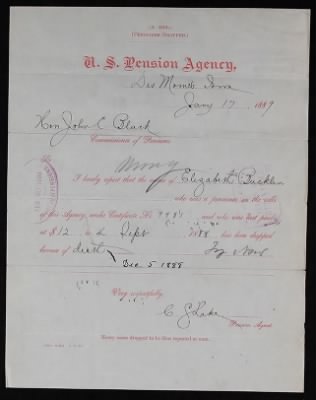 (PENSIONER DROPPED.)
U. S. Pension Agency,
Des Moines, Iowa
Jany 17, 1889
Hon John C Black
Commissioner of Pensions.
Sir
I hereby report that the name of Elizabeth
who was a pensioner on the rolls
of this Agency, under Certificate No. and who was last paid
at $12, to 4 Sept, 1888, has been dropped
because of death
Dec 5 1888
Very respectfully,
C. S. Lake
Pension Agent.
Every name dropped to be thus reported at once.